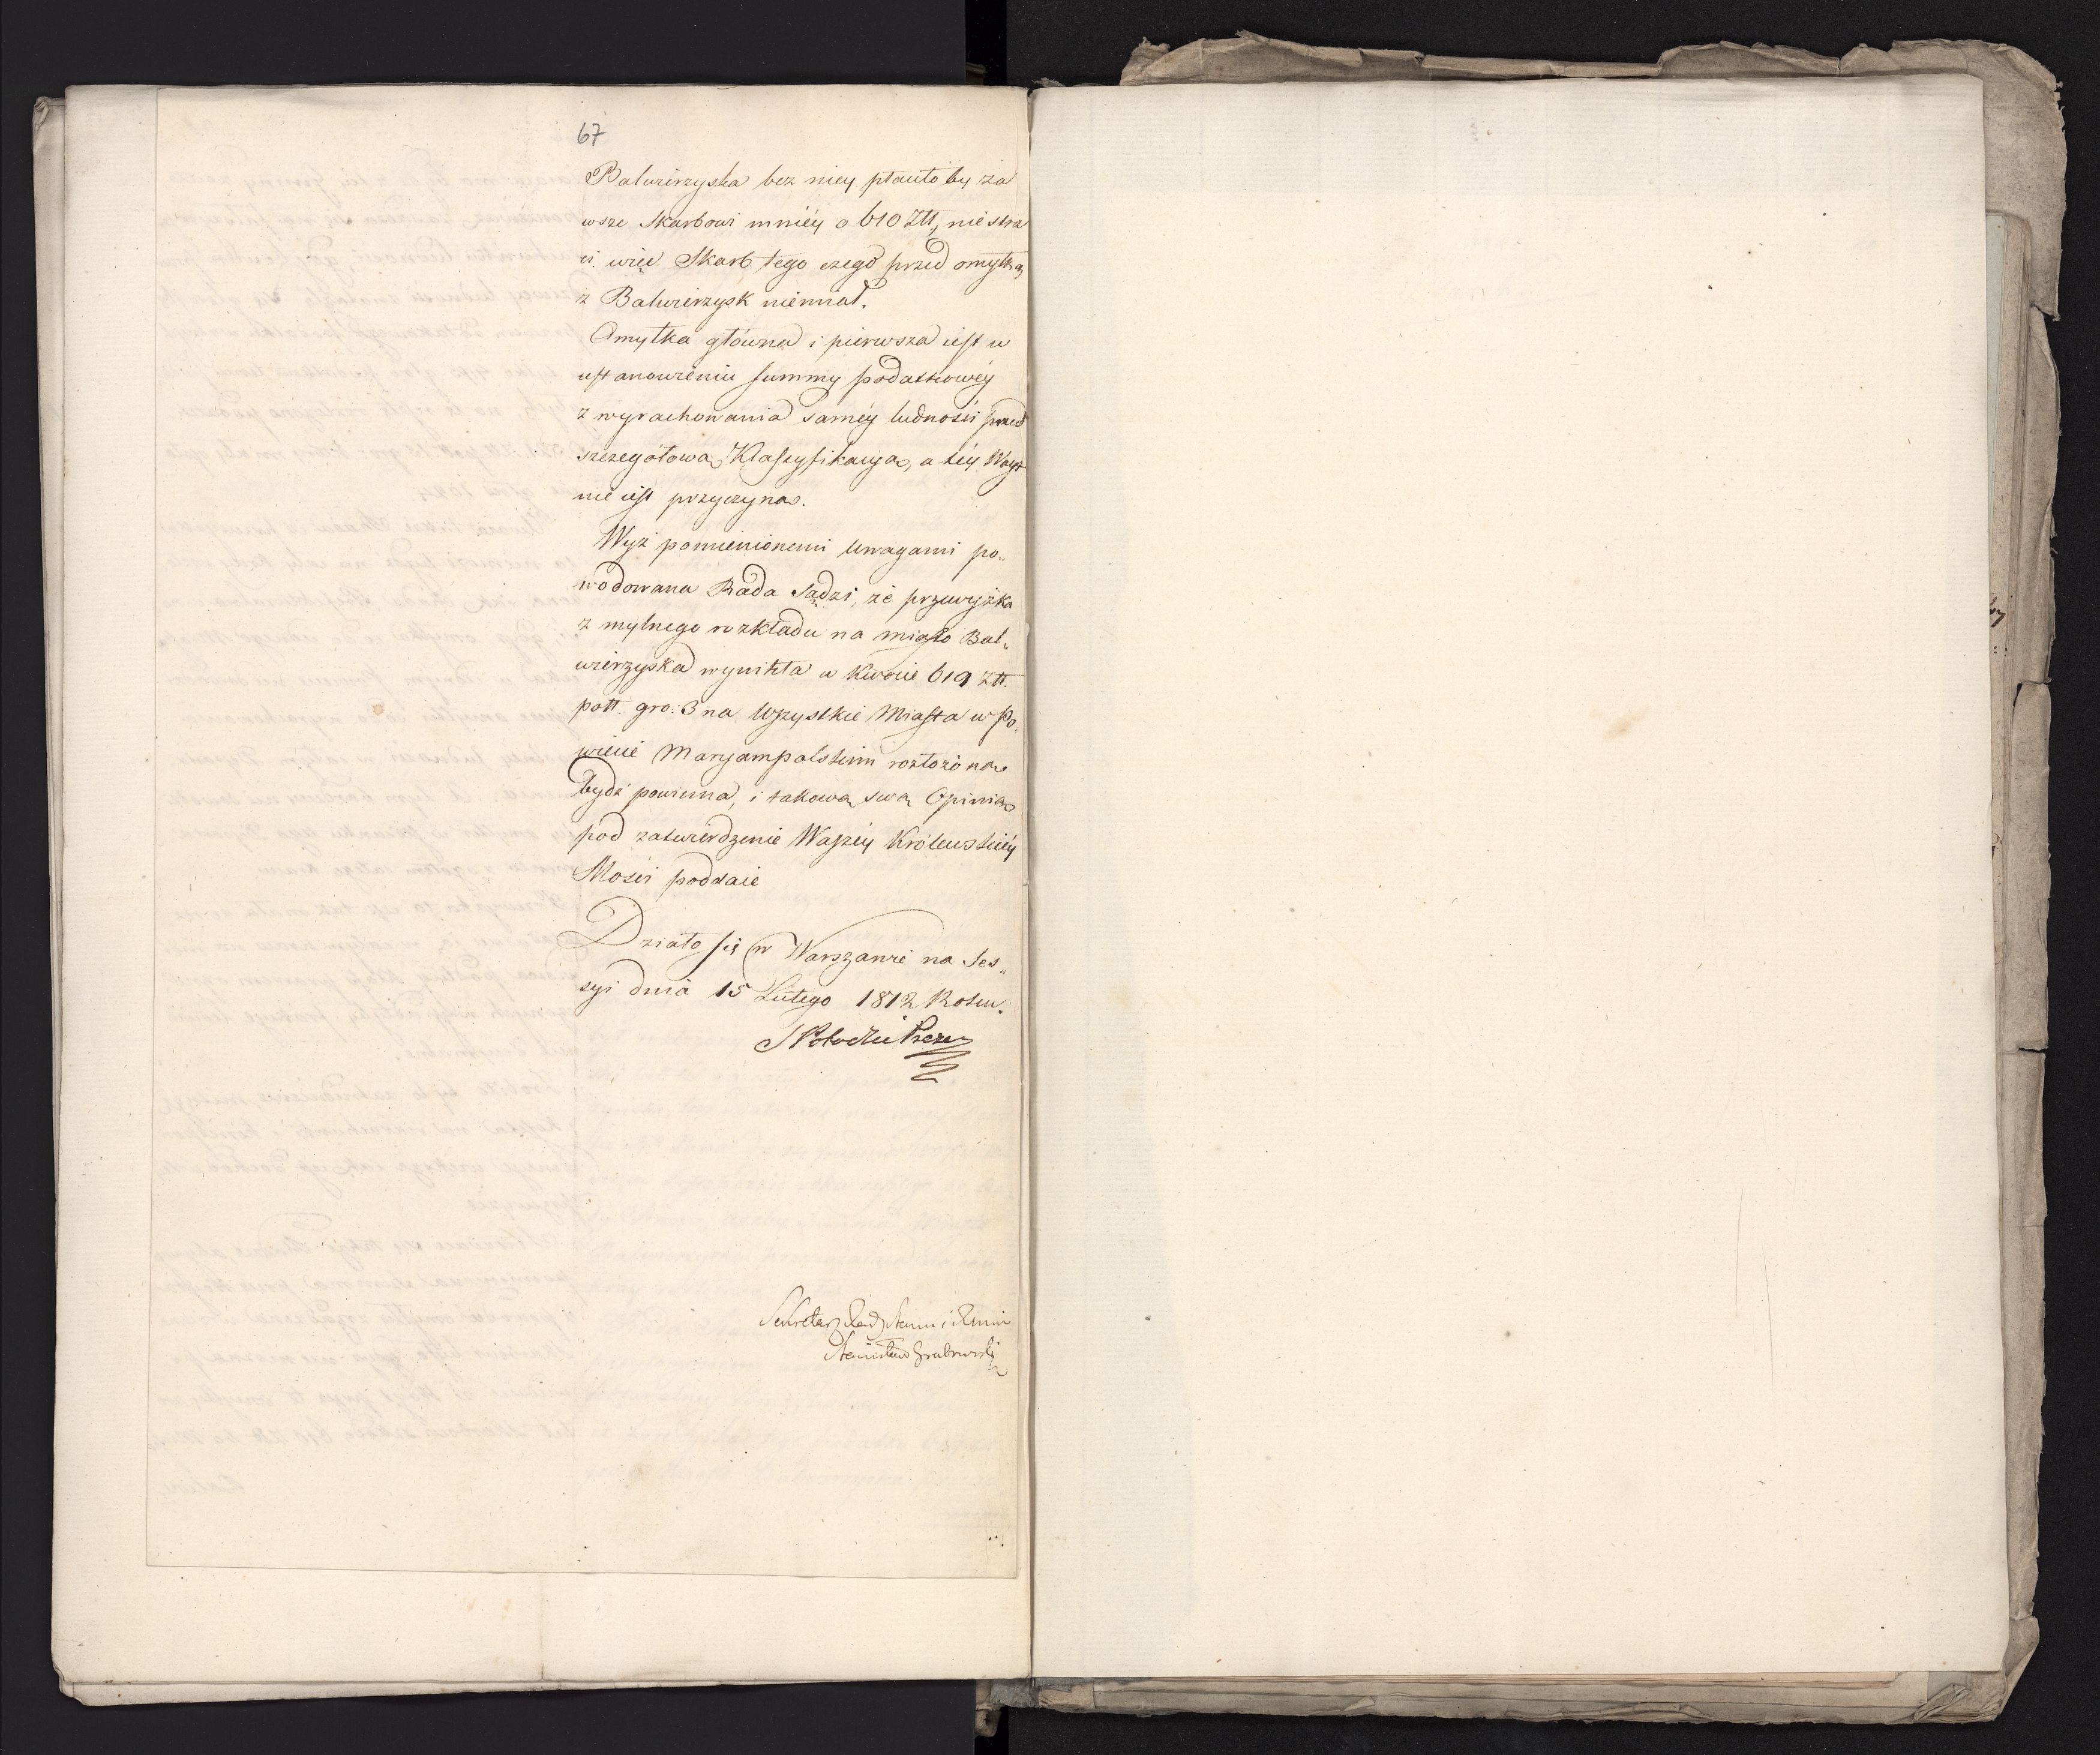 67
Balwirzyska bez niey płaciło by za
wsze Skarbowi mniéy o 610 Złł, nie stra
ci więc Skarb tego czego przed omyłką
z Balwirzysk niemiał.
Omyłka główna i pierwsza iest w
ustanowieniu summy podatkowéy
z wyrachowania saméy ludności przed
szczegółową Klassyfikacyą, a téy Woyt
nie iest przyczyną.
Wyż pomienionemi Uwagami po„
wodowana Rada Sądzi, że przewyżka
z mylnego rozkładu na miasto Bal„
wierzyska wynikła w kwocie 619 złł.
poll. gro: 3 na wszystkie Miasta w Po„
wiecie Maryampolskim rozłożoną
bydź powinna, i takową swą Opinią
pod zatwierdzenie Waszéy Królewskiéy
Mości poddaie
Działo się w Warszawie na Ses„
syi dnia 15 Lutego 1812 Roku.
S Potocki Prezes
Sekretarz Rady Stanu i
Stanisław Grabowski